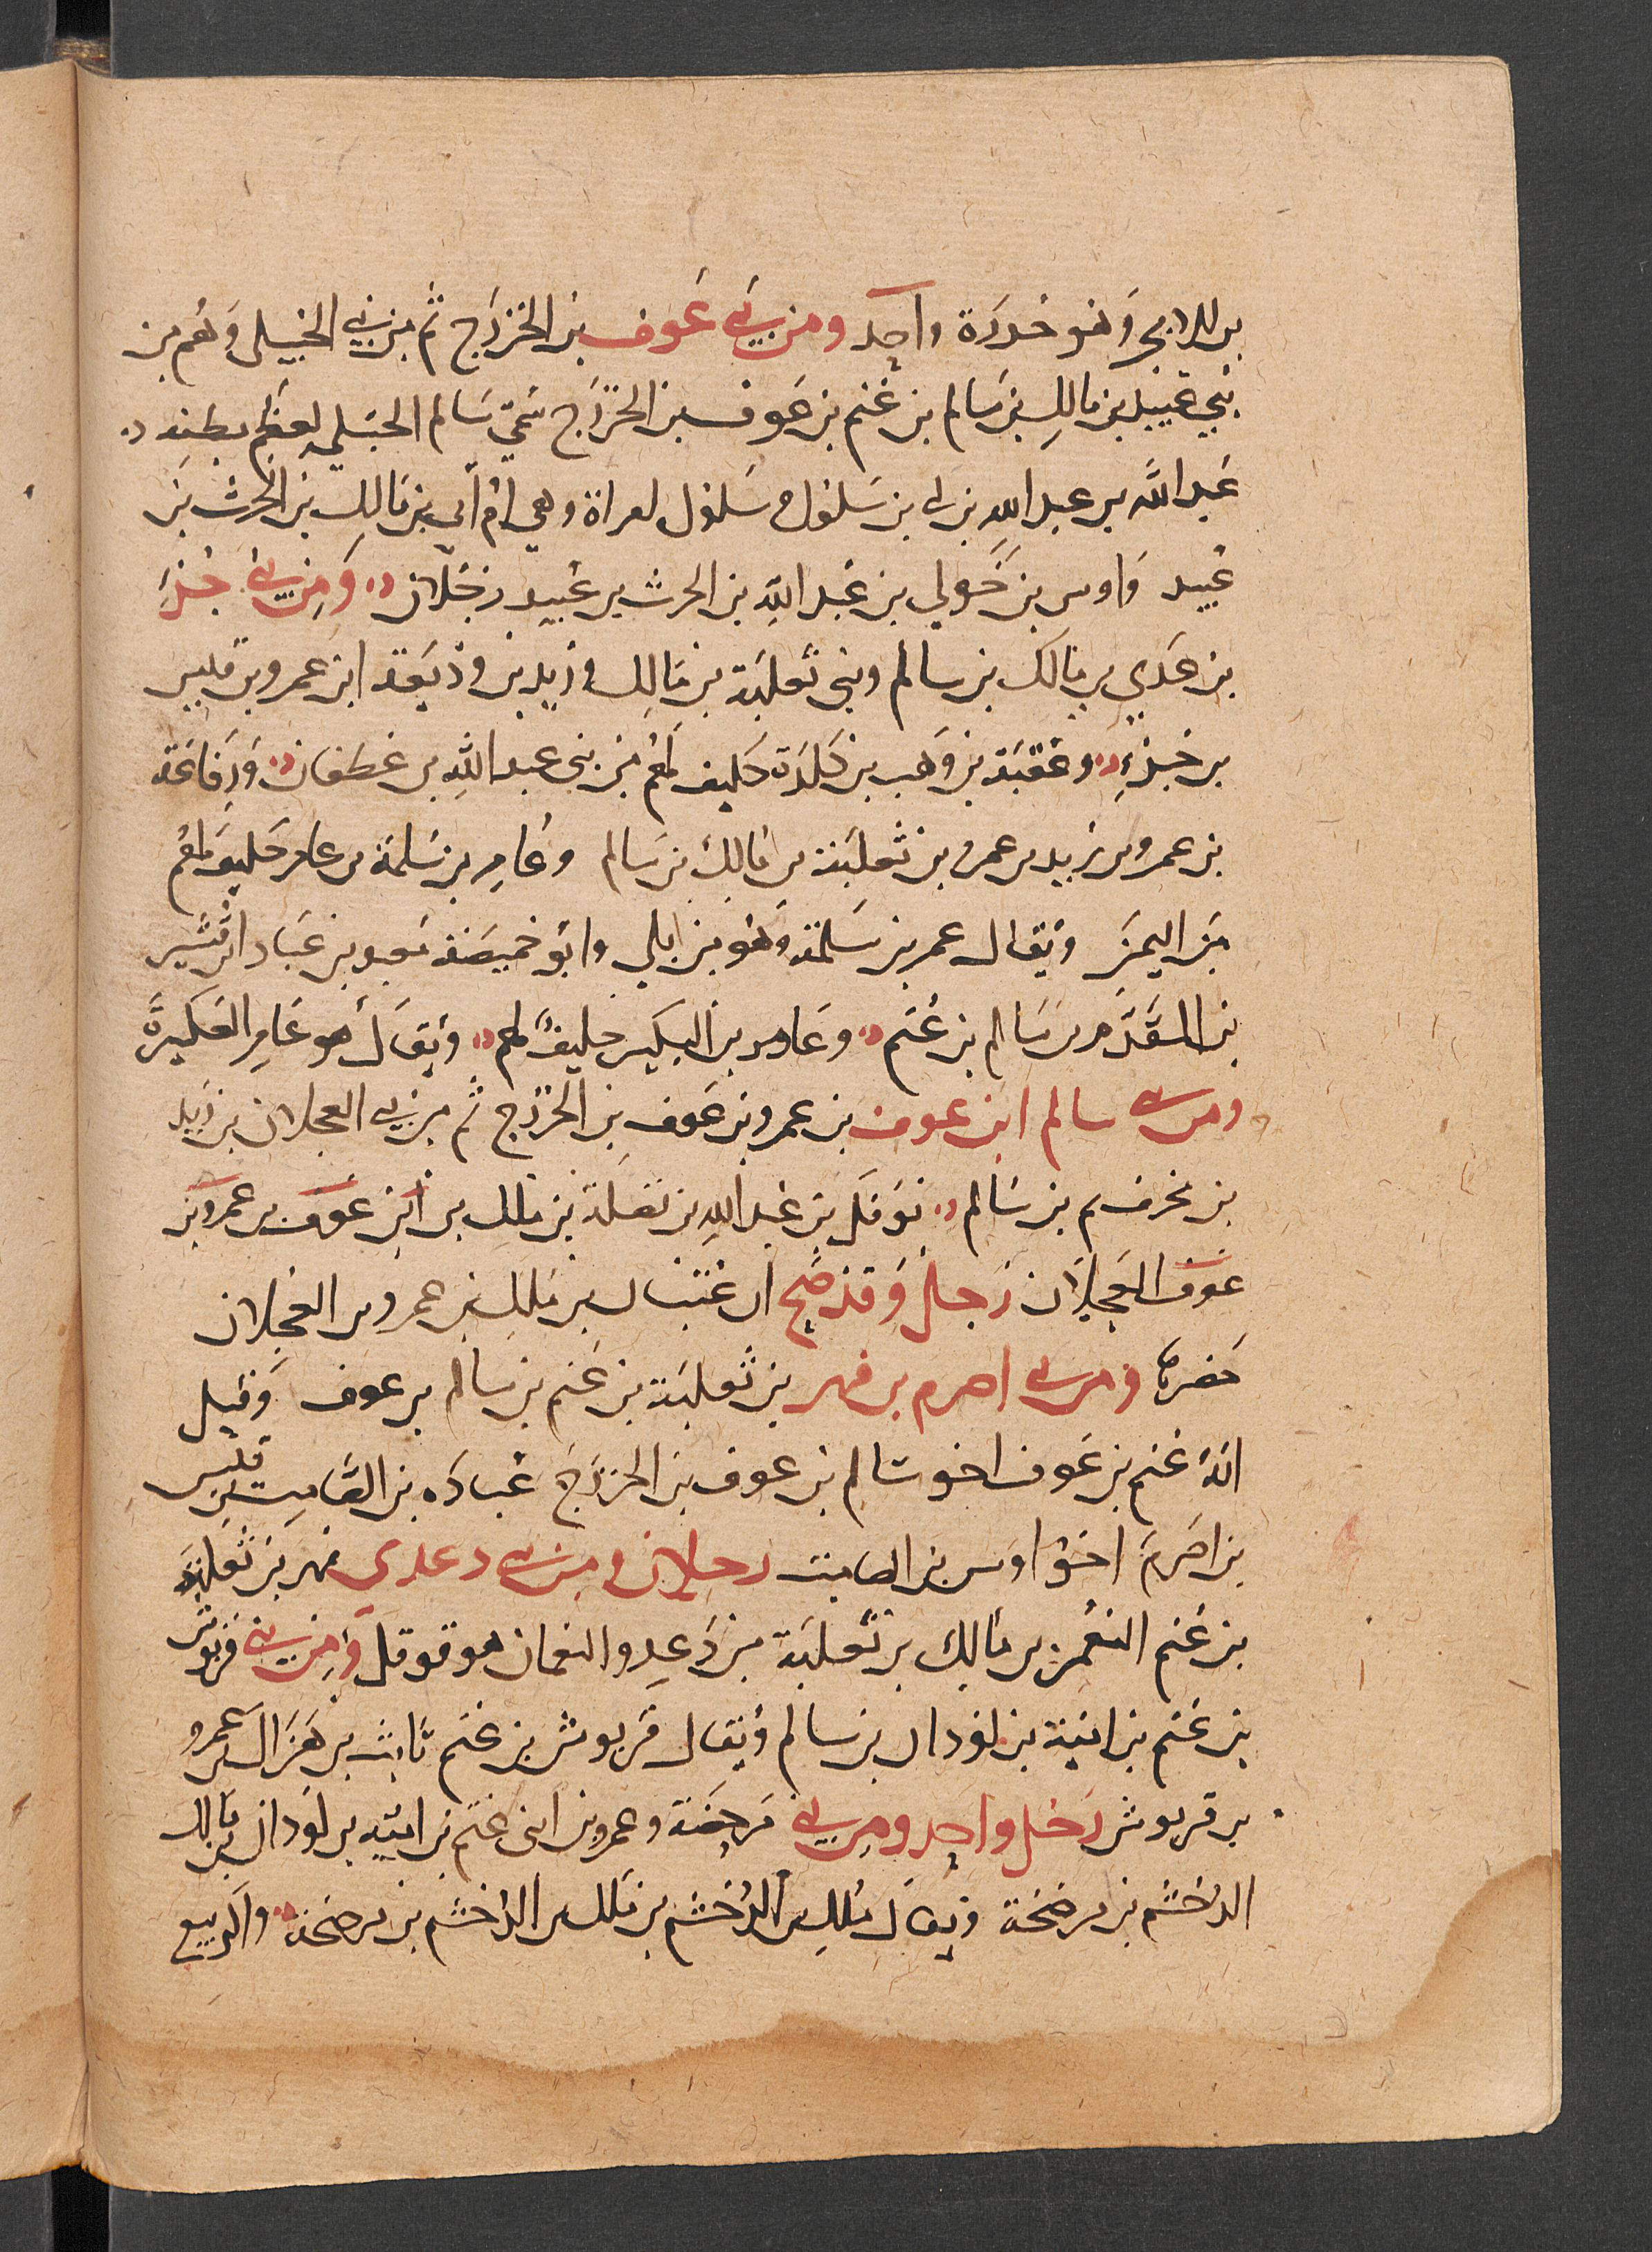 بن الابجر وهو خدرة واحد ومن بني عوف بن الخزرج ثم من بني الحبلى وهم من
بني عبيد بن مالك بن سالم بن غنم بن عوف بن الخزرج سمي سالم الحبلى لعظم بطنه
عبد الله بن عبد الله بن ابي بن سلول وسلول امراة وهي ام ابي بن مالك بن الحرث بن
عبيد واوس بن خولي بن عبد الله بن الحرث بن عبيد رجلان ومن بني جزء
بن عدي بن مالك بن سالم وبني ثعلبة بن مالك وزيد بن وديعة ابن عمرو بن قيس
بن جزء وعقبة بن وهب بن كلدة حليف لهم من بني عبد الله بن غطفان ورفاعة
بن عمرو بن زيد بن عمرو بن ثعلبة بن مالك بن سالم وعامر بن سلمة بن عامر حليف لهم
من اليمن ويقال عمر بن سلمة وهو من بلي وابو خميصة معبد بن عباد ابن قشير
بن المقدم بن سالم بن غنم وعامر بن البكير حليف لهم ويقال هو عامر العكير
ومن بني سالم ابن عوف بن عمرو بن عوف بن الخزرج ثم من بني العجلان بن زيد
بن غنم بن سالم نوفل بن عبد الله بن نضلة بن ملك بن ابن عوف بن عمرو بن
عوف العجلان رجل وقد صح ان عتبان بن ملك بن عمرو بن العجلان
حضرها ومن بني اصرم بن فهر بن ثعلبة بن غنم بن سالم بن عوف وقيل
انه غنم بن عوف اخو سالم بن عوف بن الخزرج عبادة بن الصامت بن قيس
بن اصرم اخو اوس بن الصامت رجلان ومن بني دعد بن فهر بن ثعلبة
بن غنم النعمن بن مالك بن ثعلبة بن دعد والنعمان هو قوقل ومن بني قربوش
بن غنم بن امية بن لوذان بن سالم ويقال قربوش بن غنم ثابت بن هزال بن عمرو
بن قربوش رجل واحد ومن بني مرضخة وعمرو بن ابني غنم بن امية بن لوذان مالك بن
الدخشم بن مرضخة ويقال ملك بن الدخشم بن ملك بن الدخشم بن مرضخة والربيع